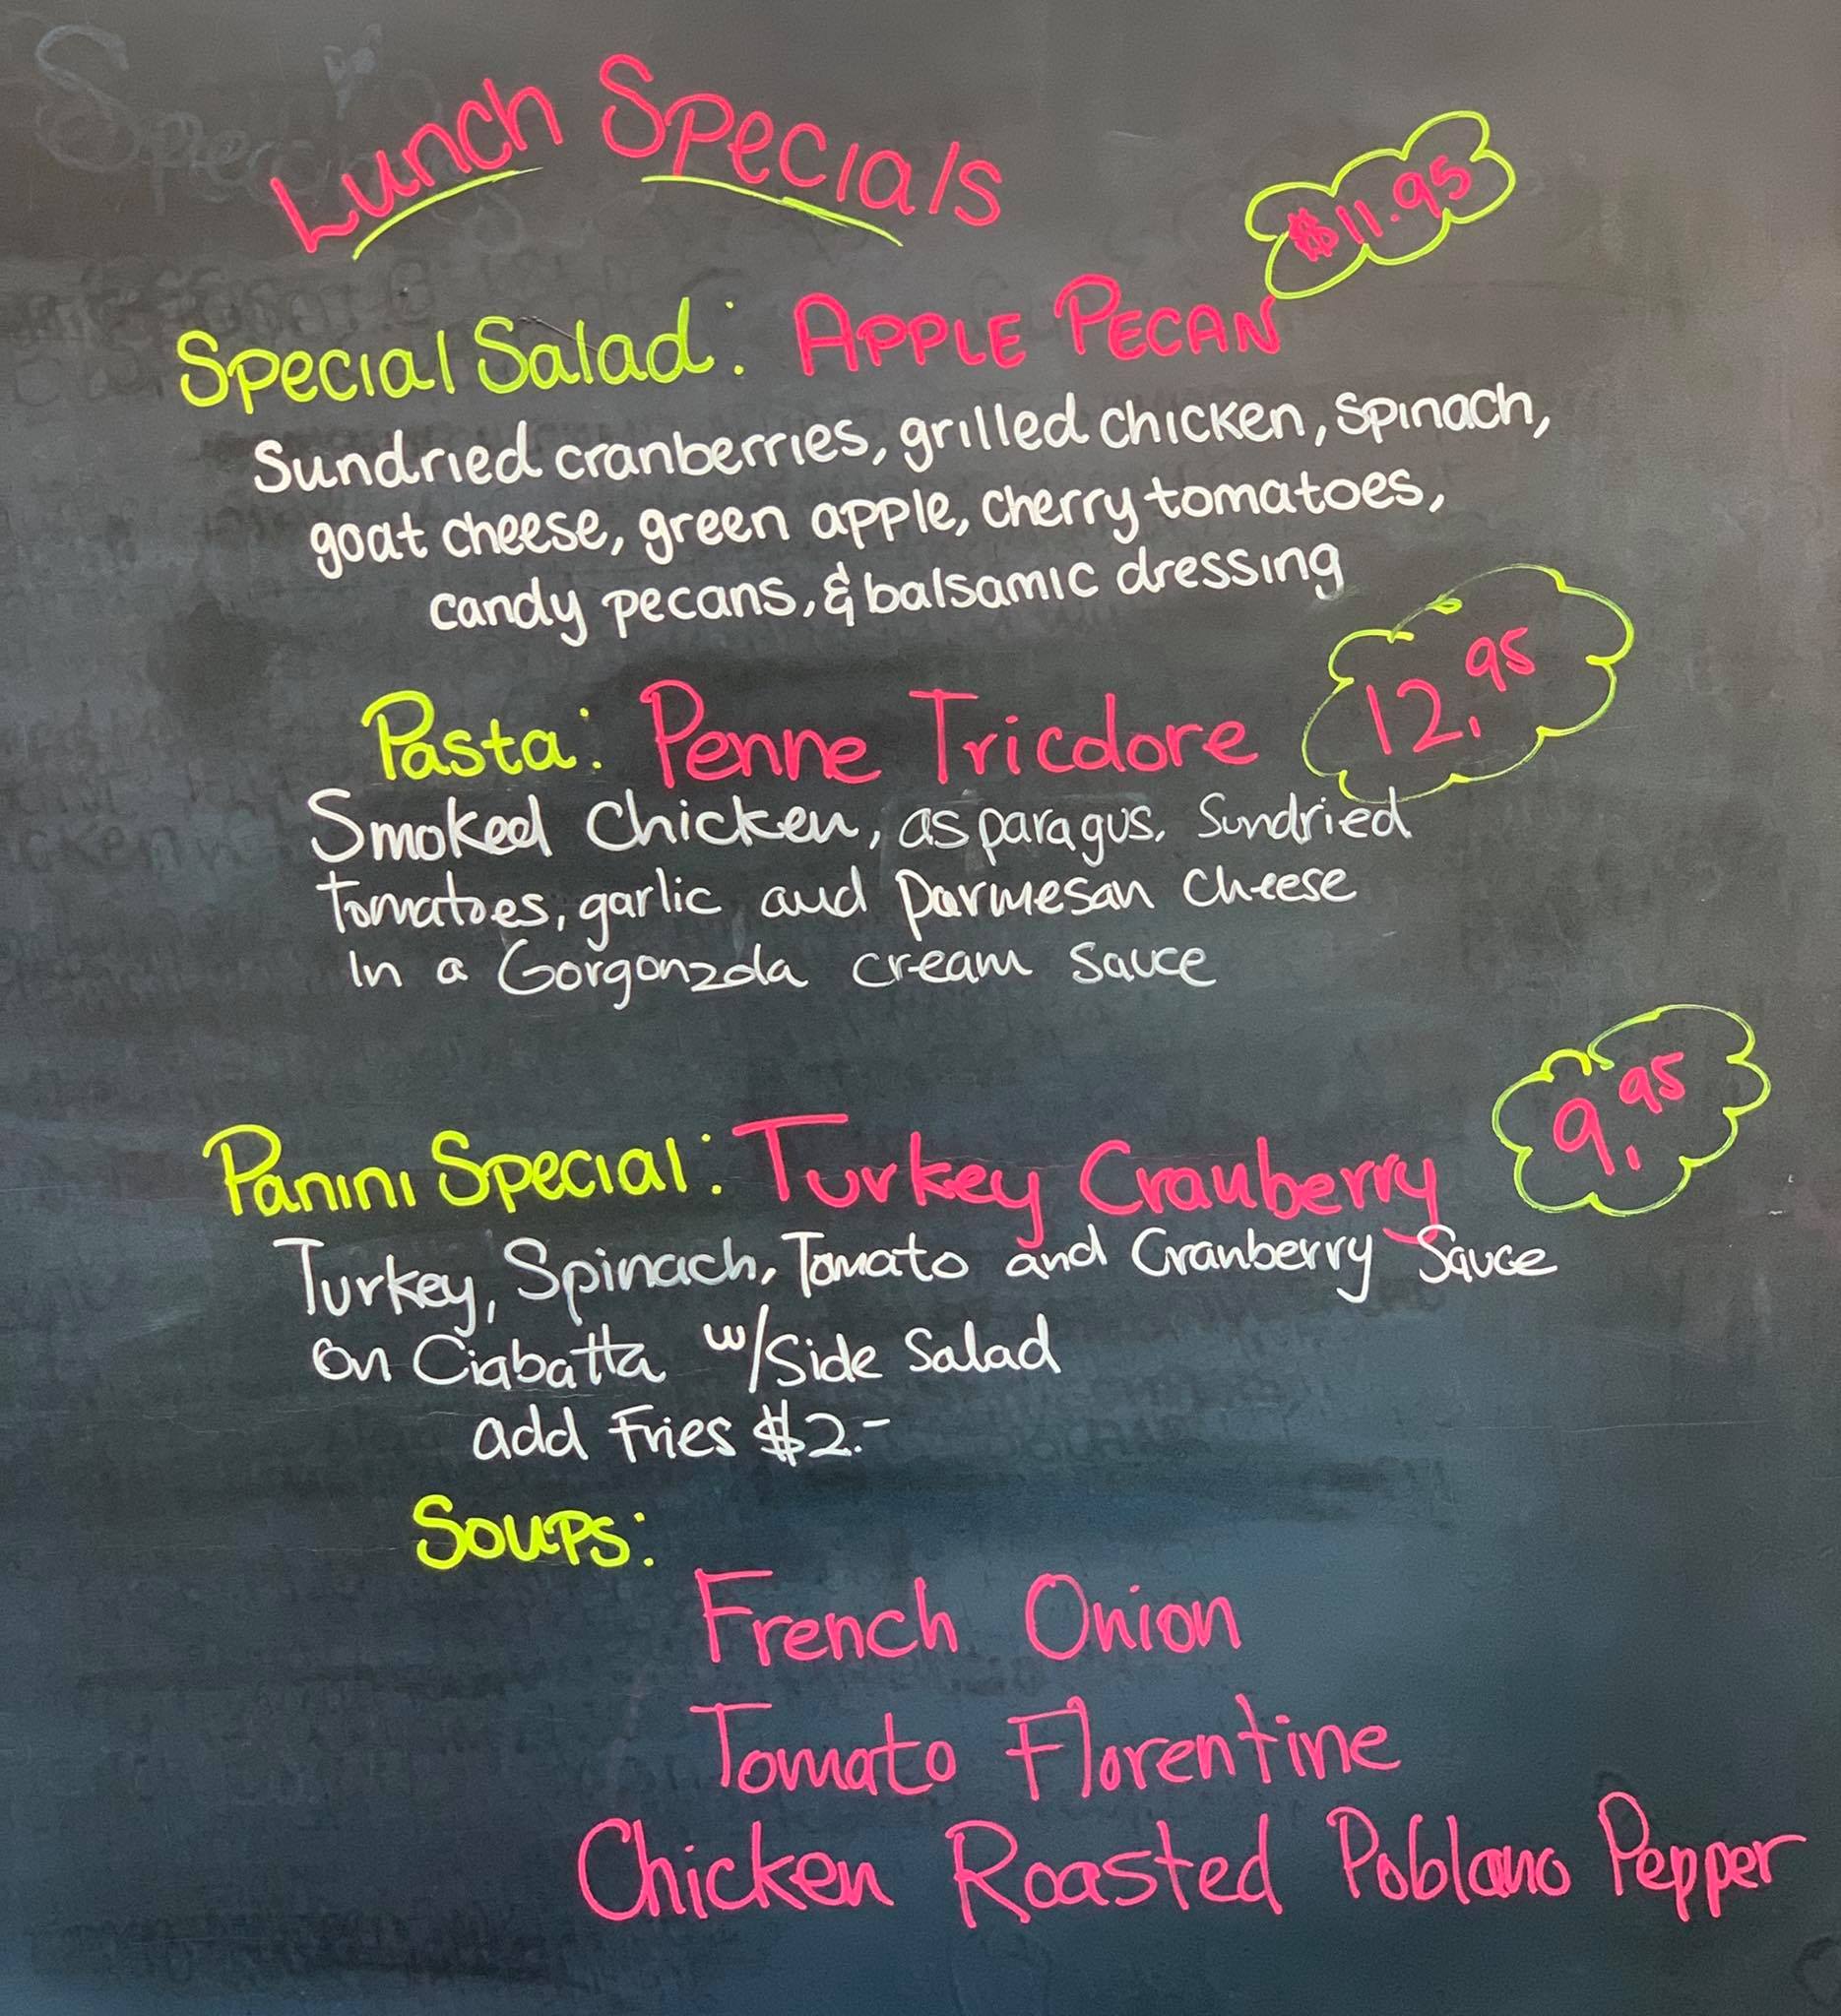 Lunch Specials
$11.95
Special Salad: APPLE PECAN
Sundried cranberries, grilled chicken, spinach,
goat cheese, green apple, cherry tomatoes,
candy pecans, & balsamic dressing
12.95
Pasta: Penne Tricolore
Smoked Chicken, asparagus, Sundried
tomatoes, garlic and Parmesan Cheese
In a Gorgonzola cream Sauce
9.95
Panini Special: Turkey Cranberry
Turkey, Spinach, Tomato and Cranberry Sauce
On Ciabatta w/Side Salad
add Fries $2.-
Soups:
French Onion
Tomato Florentine
Chicken Roasted Poblano Pepper